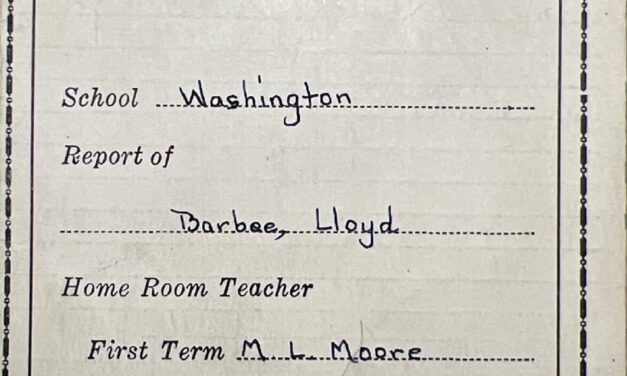 School Washington
Report of
Barbee, Lloyd
Home Room Teacher
First Term M. L. Moore